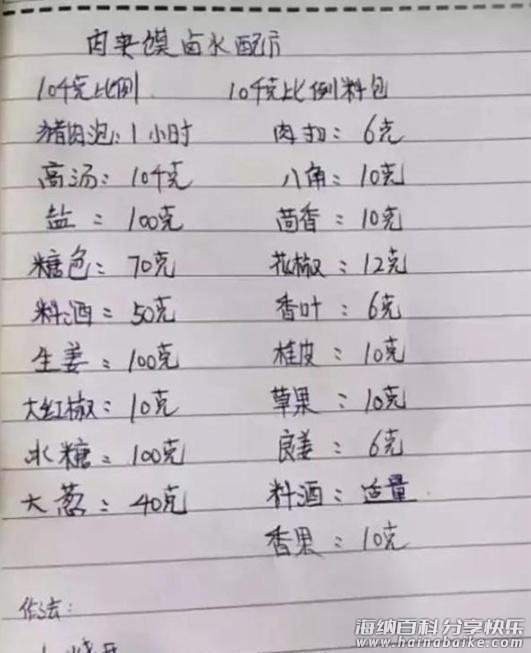 肉夹馍卤水配方
10千克比例 10千克比例料包
猪肉泡：1小时 肉扣：6克
高汤：10千克 八角：10克
盐：100克 茴香：10克
糖色：70克 花椒：12克
料酒：50克 香叶：6克
生姜：100克 桂皮：10克
大红椒：10克 草果：10克
冰糖：100克 良姜：6克
大葱：40克 料酒：适量
香果：10克
作法：
海纳百科分享快乐
www.hainabaike.com